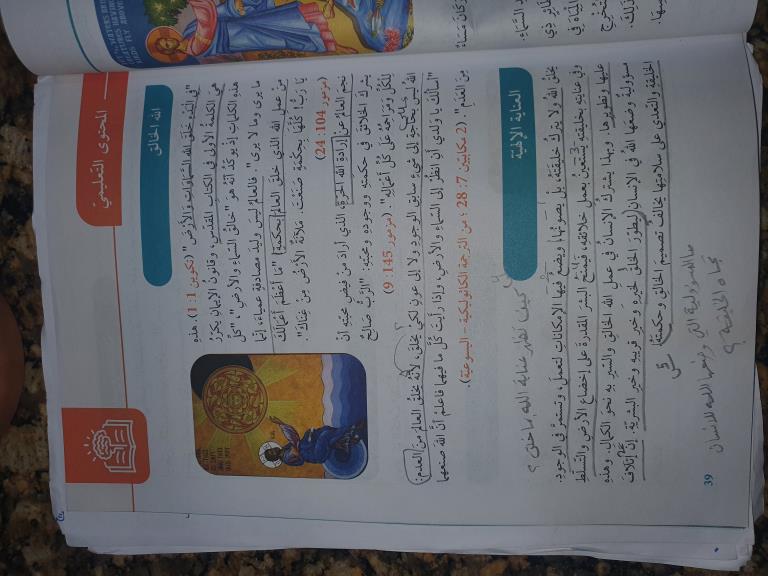 المحتوى التعليمي
الله الخالق
"في البدء خلق الله السماوات والأرض" (تكوين 1: 1) هذه
هي الكلمة الأولى في الكتاب المقدس، وقانون الإيمان يكرّر
هذه الكلمات إذ يؤكد أنه هو "خالق السماء والأرض"، "كل
ما يرى وما لا يرى". فالعالم ليس وليد مصادفة عمياء، إنما
من عمل الله الذي خلق العالم بحكمة "ما أعظم أعمالك
يا رب! كلها بحكمة صنعت. ملآنة الأرض من غناك"
(مزمور 104: 24)
نجم العالم عن إرادة الله الحرة، الذي أراد من فيض محبته أن
يشرك الخلائق في حكمته ووجوده ومحبته: "الرب صالح
للكل ومراحمه على كل أعماله". (مزمور 145: 9)
الله ليس بحاجة إلى شيء سابق الوجود ولا إلى عون لكي يخلق، لأنه يخلق العالم من العدم:
"أسألك يا ولدي أن انظر إلى السماء والأرض، وإذا رأيت كل ما فيهما فاعلم أن الله صنعهما
من العدم". (2 مكابيين 7: 28؛ من الترجمة الكاثوليكية – اليسوعية).
العناية الإلهية
كيف تظهر عناية الله بما خلق ؟
يخلق الله ولا يترك خليقته، بل يصونها، ويضع فيها الإمكانات لتعمل، وتستمر في الوجود.
وفي عنايته بخليقته يستعين بعمل خلائقه، فيمنح البشر المقدرة على إخضاع الأرض والتسلط
عليها وتطويرها، وبهذا يشترك الإنسان في عمل الله الخالق والسير به نحو الكمال. وهذه
مسؤولية وضعها الله في الإنسان ليطور الخلق لخيره وخير قريبه وخير البشرية. إن إتلاف
الخليقة والتعدي على سلامتها يخالف تصميم الخالق وحكمته.
ما المسؤولية التي وضعها الله للإنسان
تجاه الخليقة ؟
39